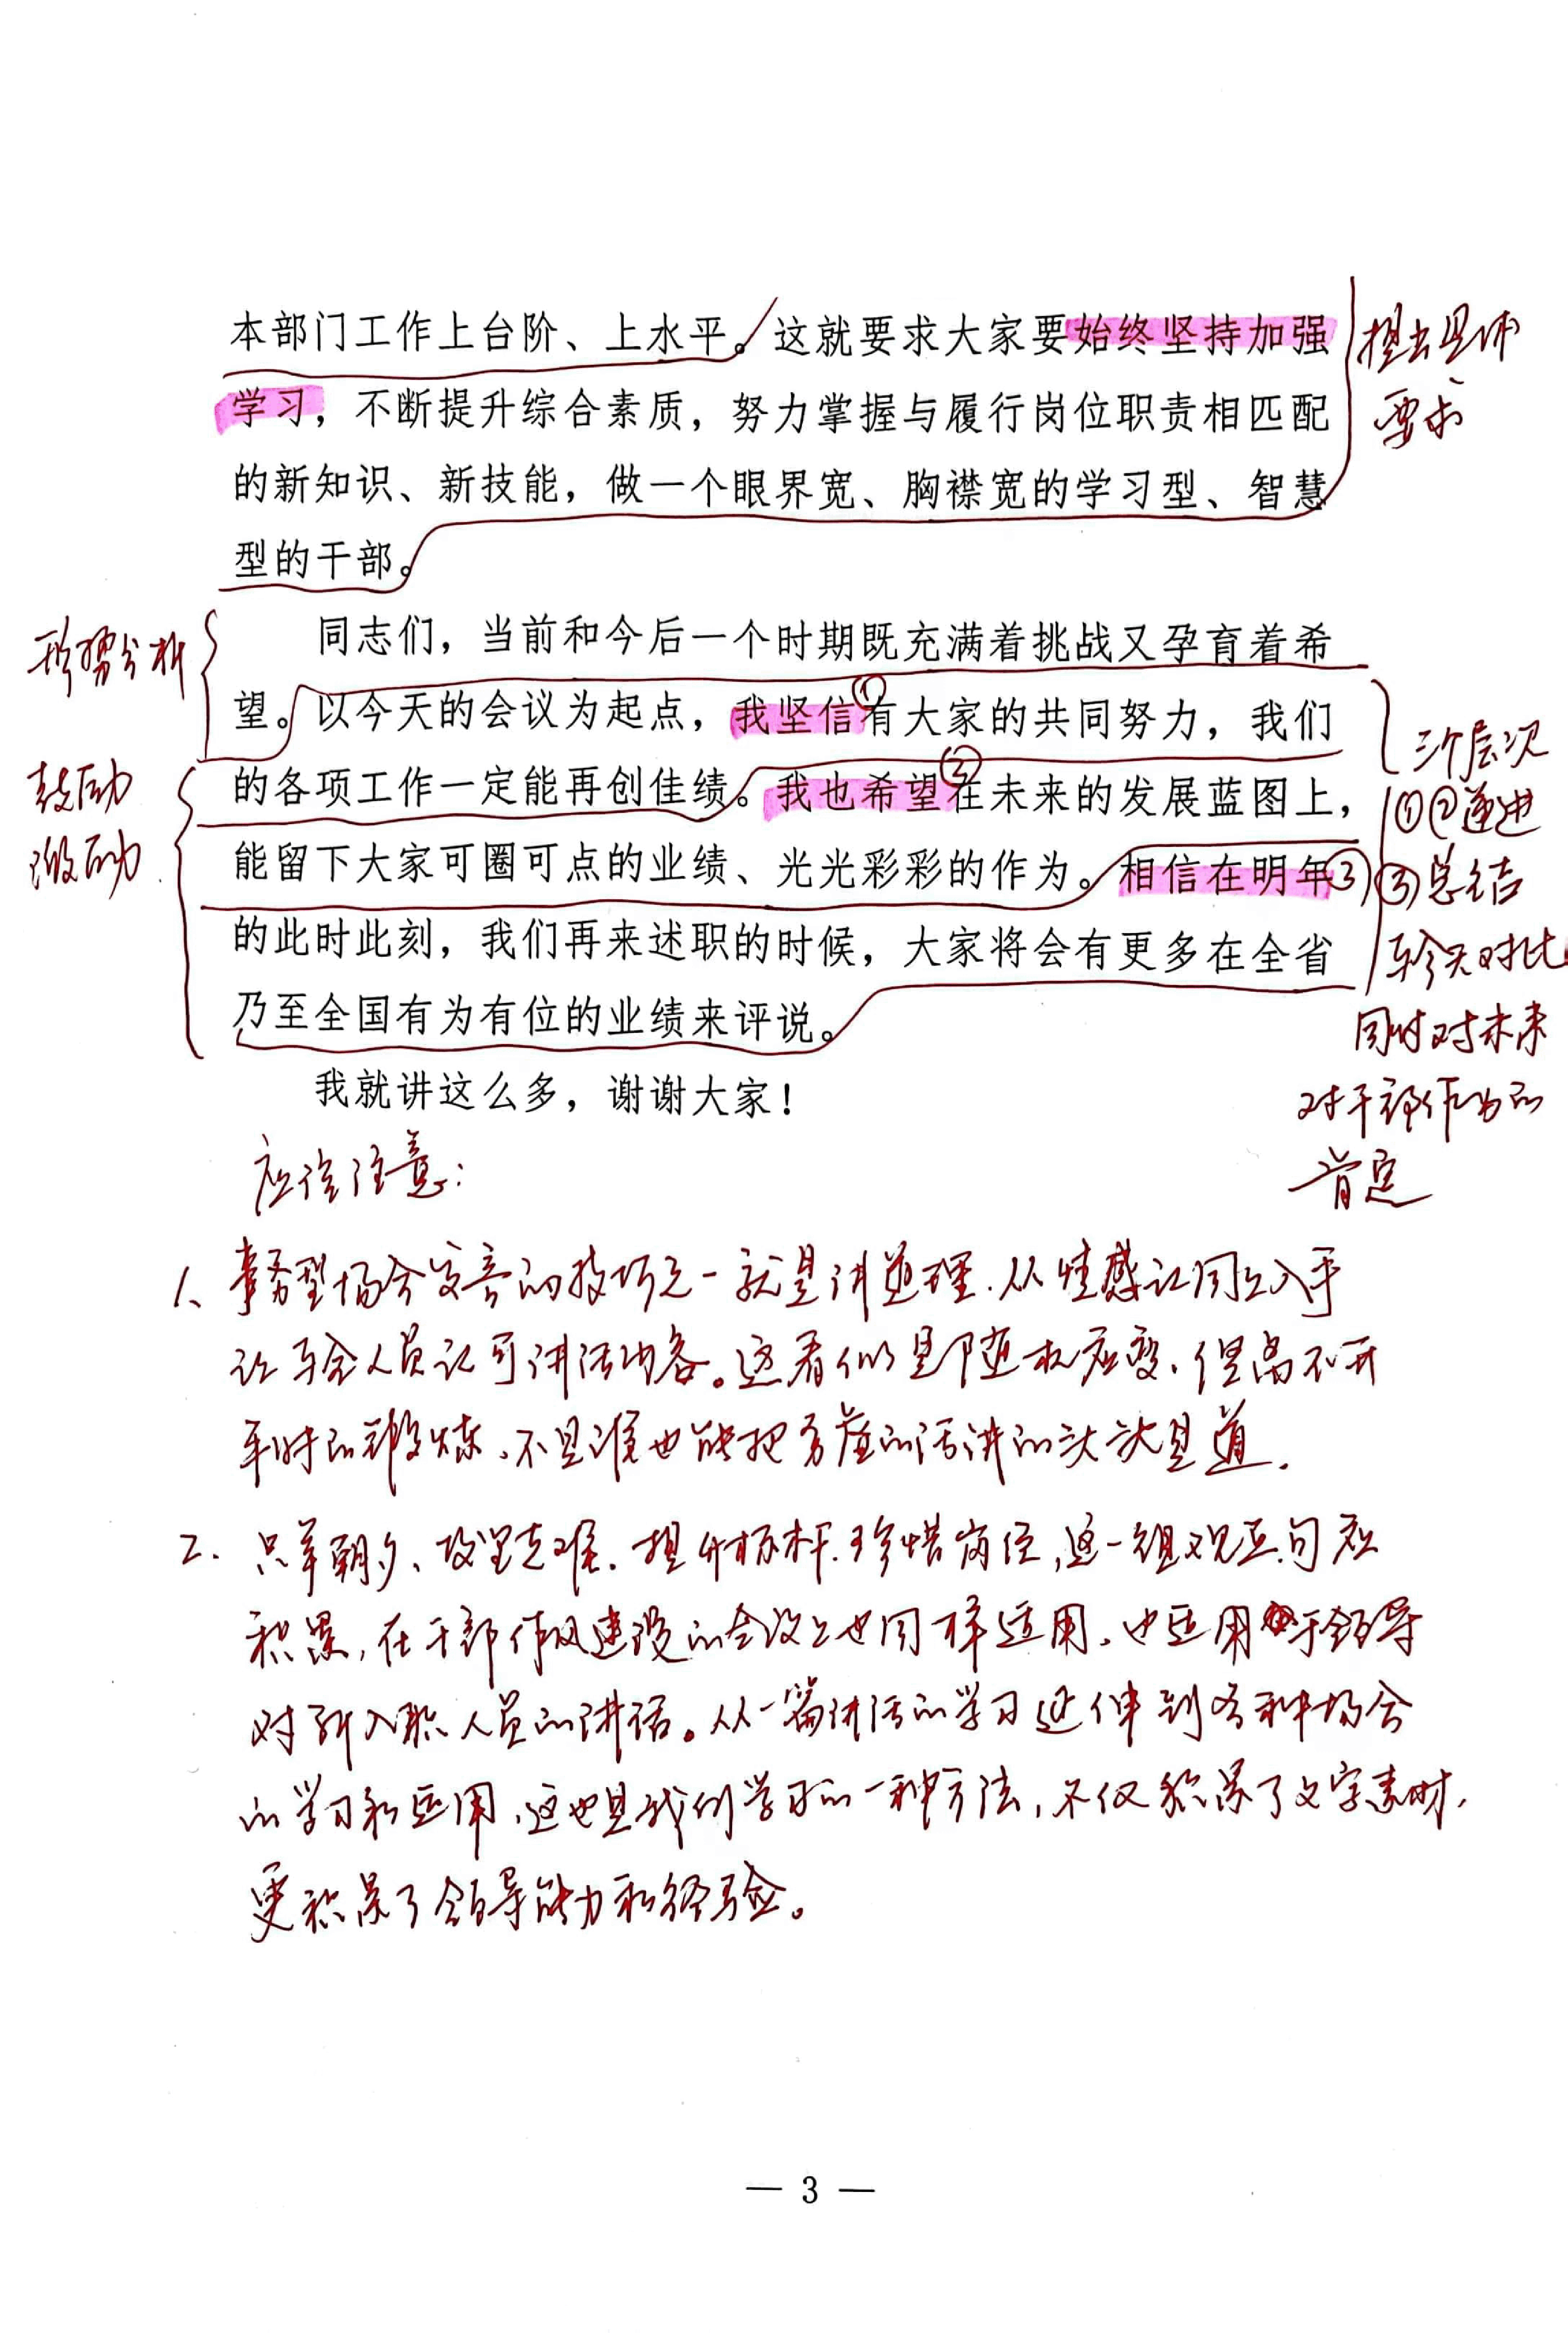 本部门工作上台阶、上水平。这就要求大家要始终坚持加强
学习，不断提升综合素质，努力掌握与履行岗位职责相匹配
的新知识、新技能，做一个眼界宽、胸襟宽的学习型、智慧
型的干部。
提出具体
要求
形势分析
同志们，当前和今后一个时期既充满着挑战又孕育着希
望。以今天的会议为起点，我坚信①有大家的共同努力，我们
的各项工作一定能再创佳绩。我也希望②在未来的发展蓝图上，
能留下大家可圈可点的业绩、光光彩彩的作为。相信在明年③
的此时此刻，我们再来述职的时候，大家将会有更多在全省
乃至全国有为有位的业绩来评说。
鼓励
激励
三个层次
①②递进
③总结
与今天对比
同时对未来
对干部作为的
肯定
我就讲这么多，谢谢大家！
应该注意：
1、事务型场合发言的技巧之一就是讲道理，从情感认同上入手
让与会人员认可讲话内容。这看似是随机应变，但离不开
平时的锻炼，不是谁也能把的话讲的头头是道。
2、只争朝夕、攻坚克难、提升标杆、珍惜岗位，这一组观点句应
积累，在干部作风建设的会议上也同样适用，也适用于领导
对新入职人员的讲话。从一篇讲话的学习延伸到各种场合
的学习和运用，这也是我们学习的一种方法，不仅积累了文字素材，
更积累了领导能力和经验。
— 3 —